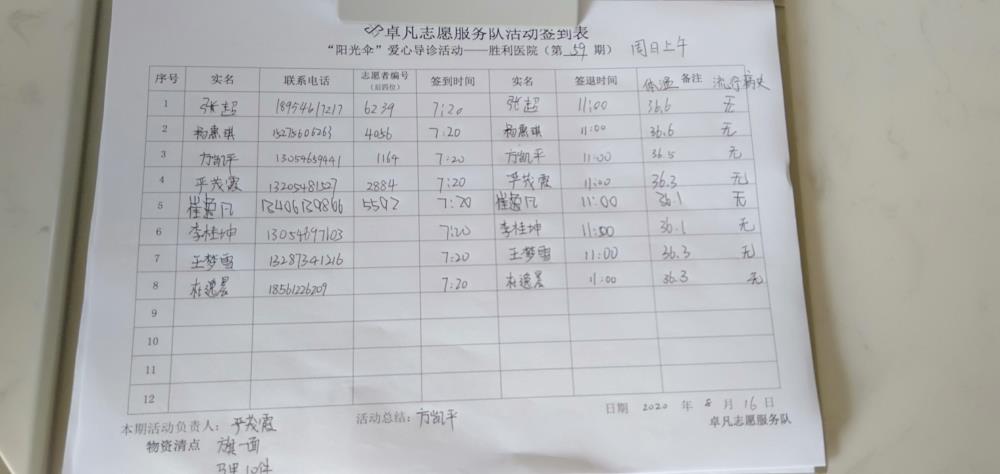 卓凡志愿服务队活动签到表
“阳光伞”爱心导诊活动——胜利医院（第 59 期） 周日上午
序号 实名 联系电话 志愿者编号（后四位） 签到时间 实名 签退时间 体温 备注 流行病史
1 张超 18954617217 6239 7:20 张超 11:00 36.6 无
2 杨惠琪 15275606263 4056 7:20 杨惠琪 11:00 36.6 无
3 方凯平 13054659441 1164 7:20 方凯平 11:00 36.5 无
4 平茂霞 13205481527 2884 7:20 平茂霞 11:00 36.3 无
5 崔逸凡 13406139866 5592 7:20 崔逸凡 11:00 36.1 无
6 李桂坤 13054697603 7:20 李桂坤 11:00 36.1 无
7 王梦雪 13287341216 7:20 王梦雪 11:00 36.3 无
8 杜逸晨 18561226209 7:20 杜逸晨 11:00 36.3 无
9
10
11
12
日期 2020 年 8 月 16 日
本期活动负责人：平茂霞 活动总结：方凯平 卓凡志愿服务队
物资清点 旗一面
马甲10件